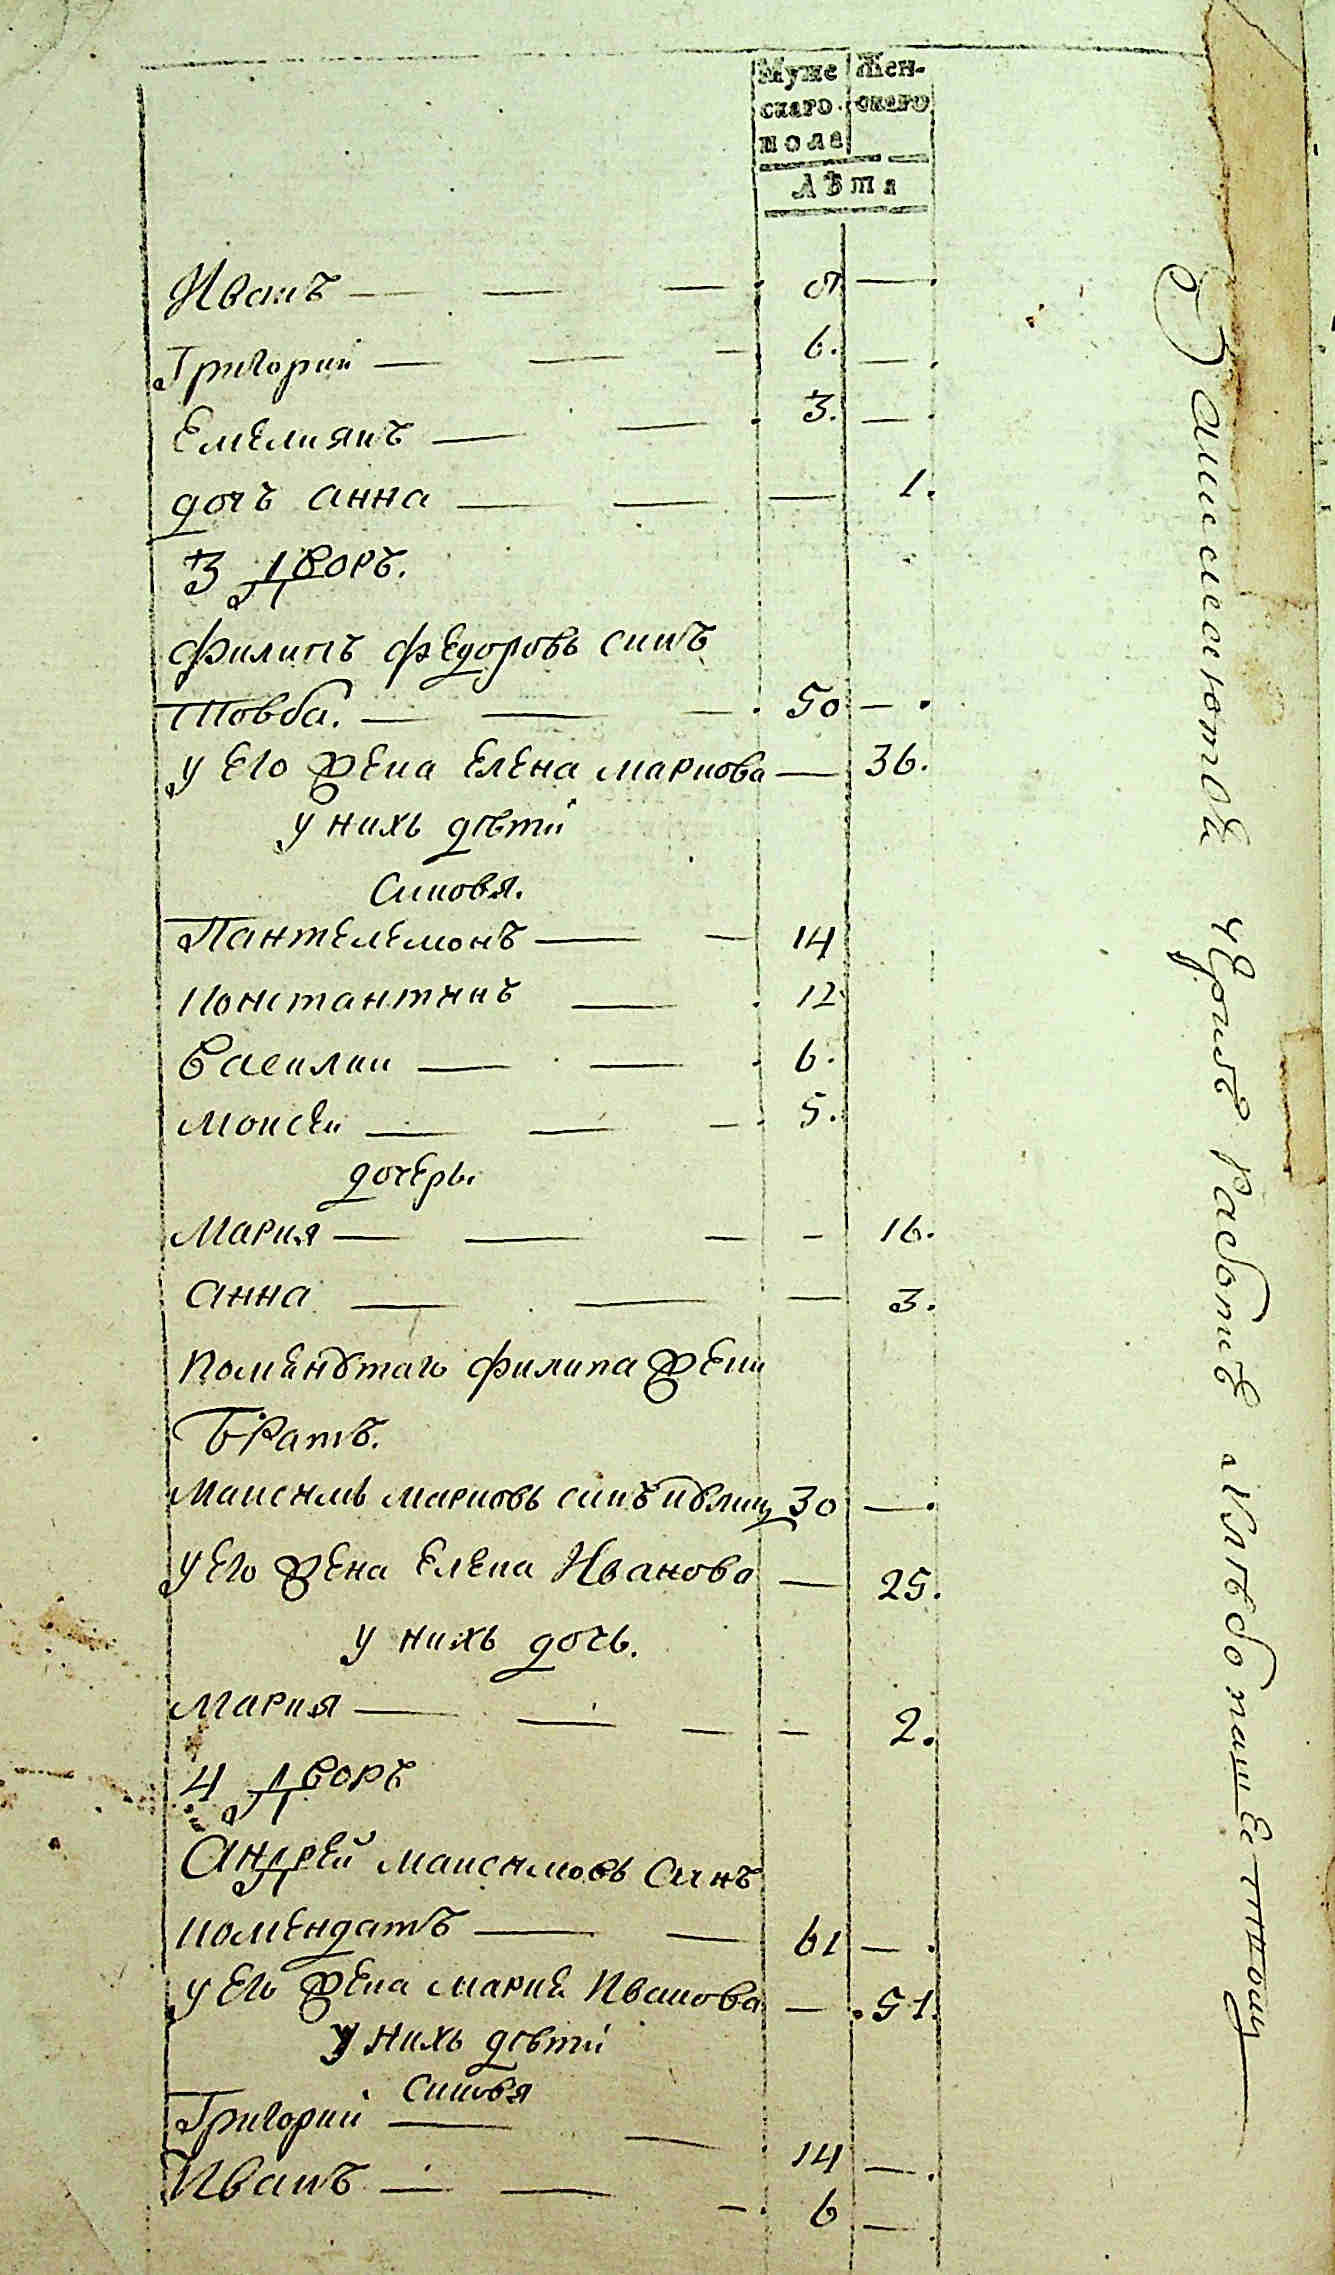 Муже
скаго
пола
Жен-
скаго
Лѣта
Иванъ
Григории 6.
Емелиянъ 3.
дочъ анна 1.
3 Дворъ.
Филипъ Федоровь синъ
Товба. 50
у его жена Елена маркова 36.
у нихь дѣти
Синовя.
Пантелемонъ 14
Константинъ 12
Василии 6.
Моисеи 5.
дочеры
Мария 16.
анна 3.
Помянутаго филипа жени
Братъ.
Максимъ марковь синъ 30
у его жена Елена Иванова 25.
у нихь дочь.
Мария 2.
4 Дворъ
Андрей максимовь Синъ
комендатъ 61
у его жена Мария Иванова 51.
у нихь дѣти
Синовя
Григории 14
Иванъ 6